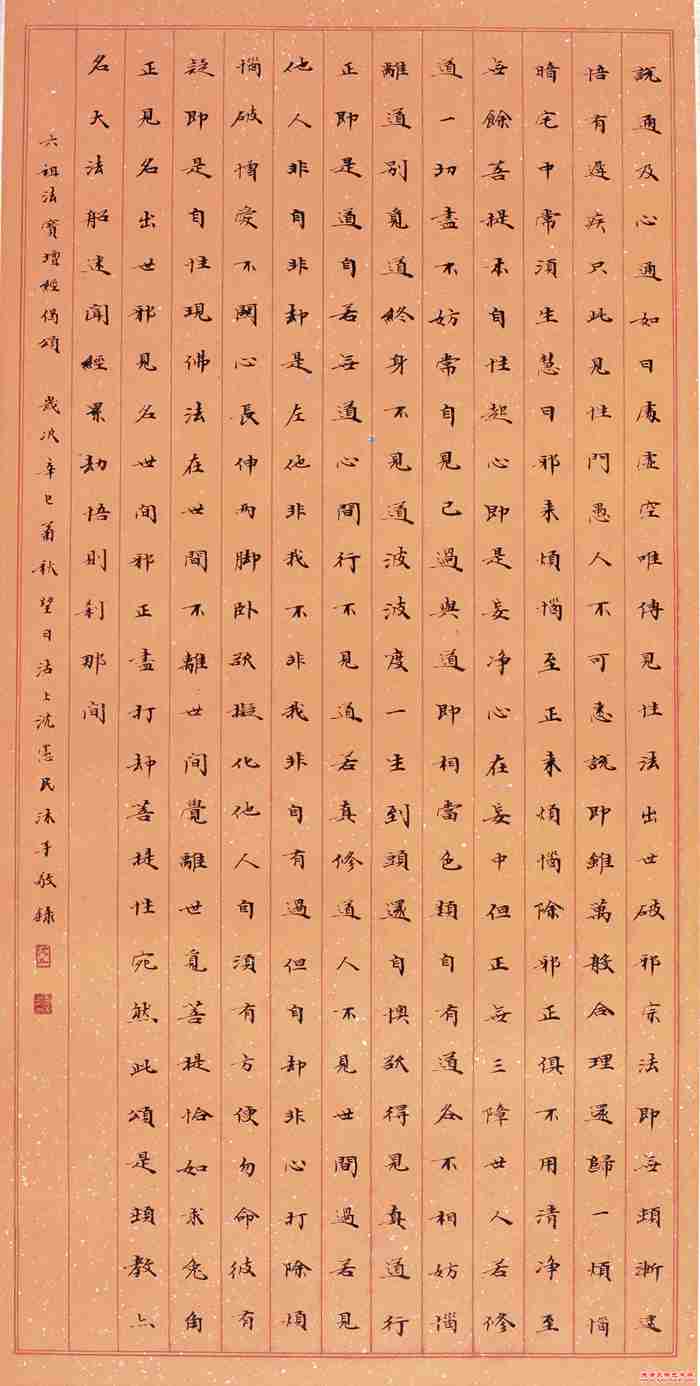 說通及心通如日處虛空唯傳見性法出世破邪宗法即無頓漸迷
悟有遲疾只此見性門愚人不可悉說即雖萬般合理還歸一煩惱
暗宅中常須生慧日邪來煩惱至正來煩惱除邪正俱不用清淨至
無餘菩提本自性起心即是妄淨心在妄中但正無三障世人若修
道一切盡不妨常自見己過與道即相當色類自有道各不相妨惱
離道別覓道終身不見道波波度一生到頭還自懊欲得見真道行
正即是道自若無道心間行不見道若真修道人不見世間過若見
他人非自非却是左他非我不非我非自有過但自却非心打除煩
惱破憎愛不關心長伸兩脚臥欲擬化他人自須有方便勿命彼有
疑即是自性現佛法在世間不離世間覺離世覓菩提恰如求兔角
正見名出世邪見名世間邪正盡打却菩提性宛然此頌是頓教亦
名大法船迷聞經累劫悟則刹那間
六祖法寶壇經偈頌 歲次辛巳蕭秋望日沽上沈憲民沐手敬錄